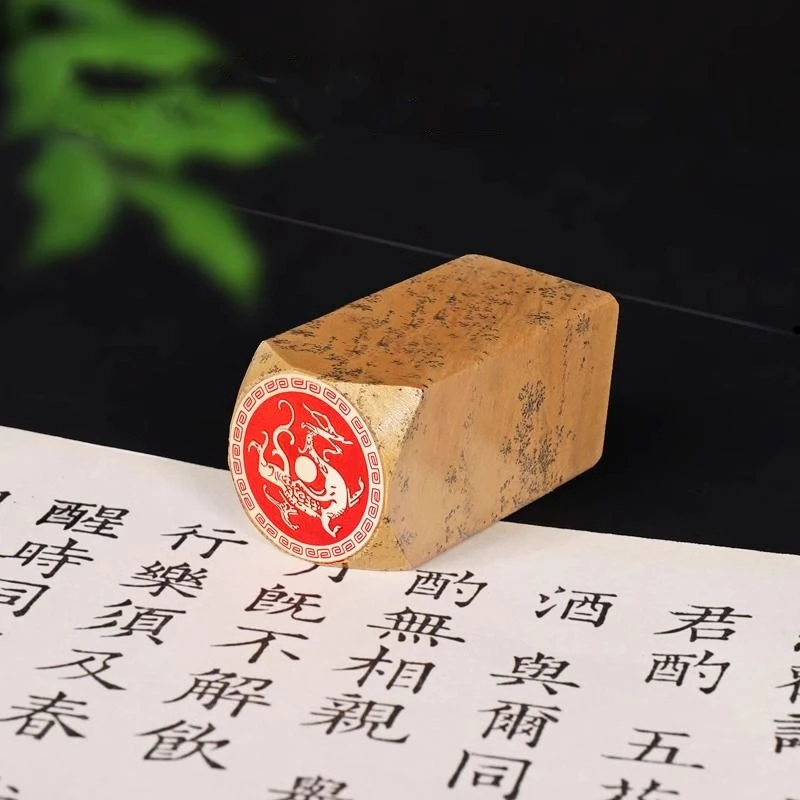 君酌五
酒與爾同
酌無相親舉
既不解飲
行樂須及春
醒時同